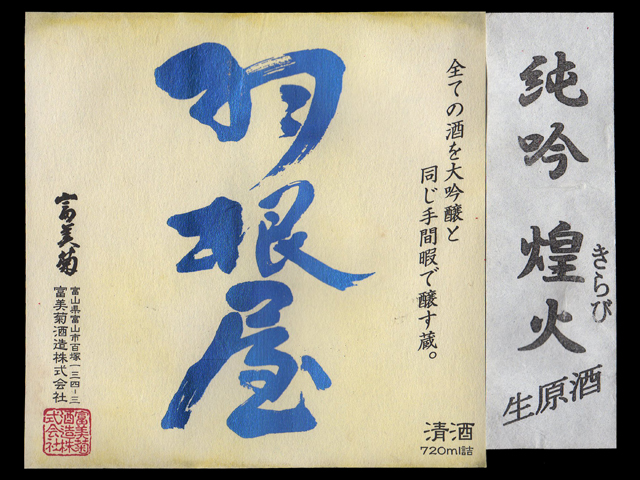 純吟 煌火
きらび
生原酒
全ての酒を大吟醸と
同じ手間暇で醸す蔵。
羽根屋
富美菊
富山県富山市百塚一三四-三
富美菊酒造株式会社
富美菊
酒造株
式会社
清酒
720ml詰